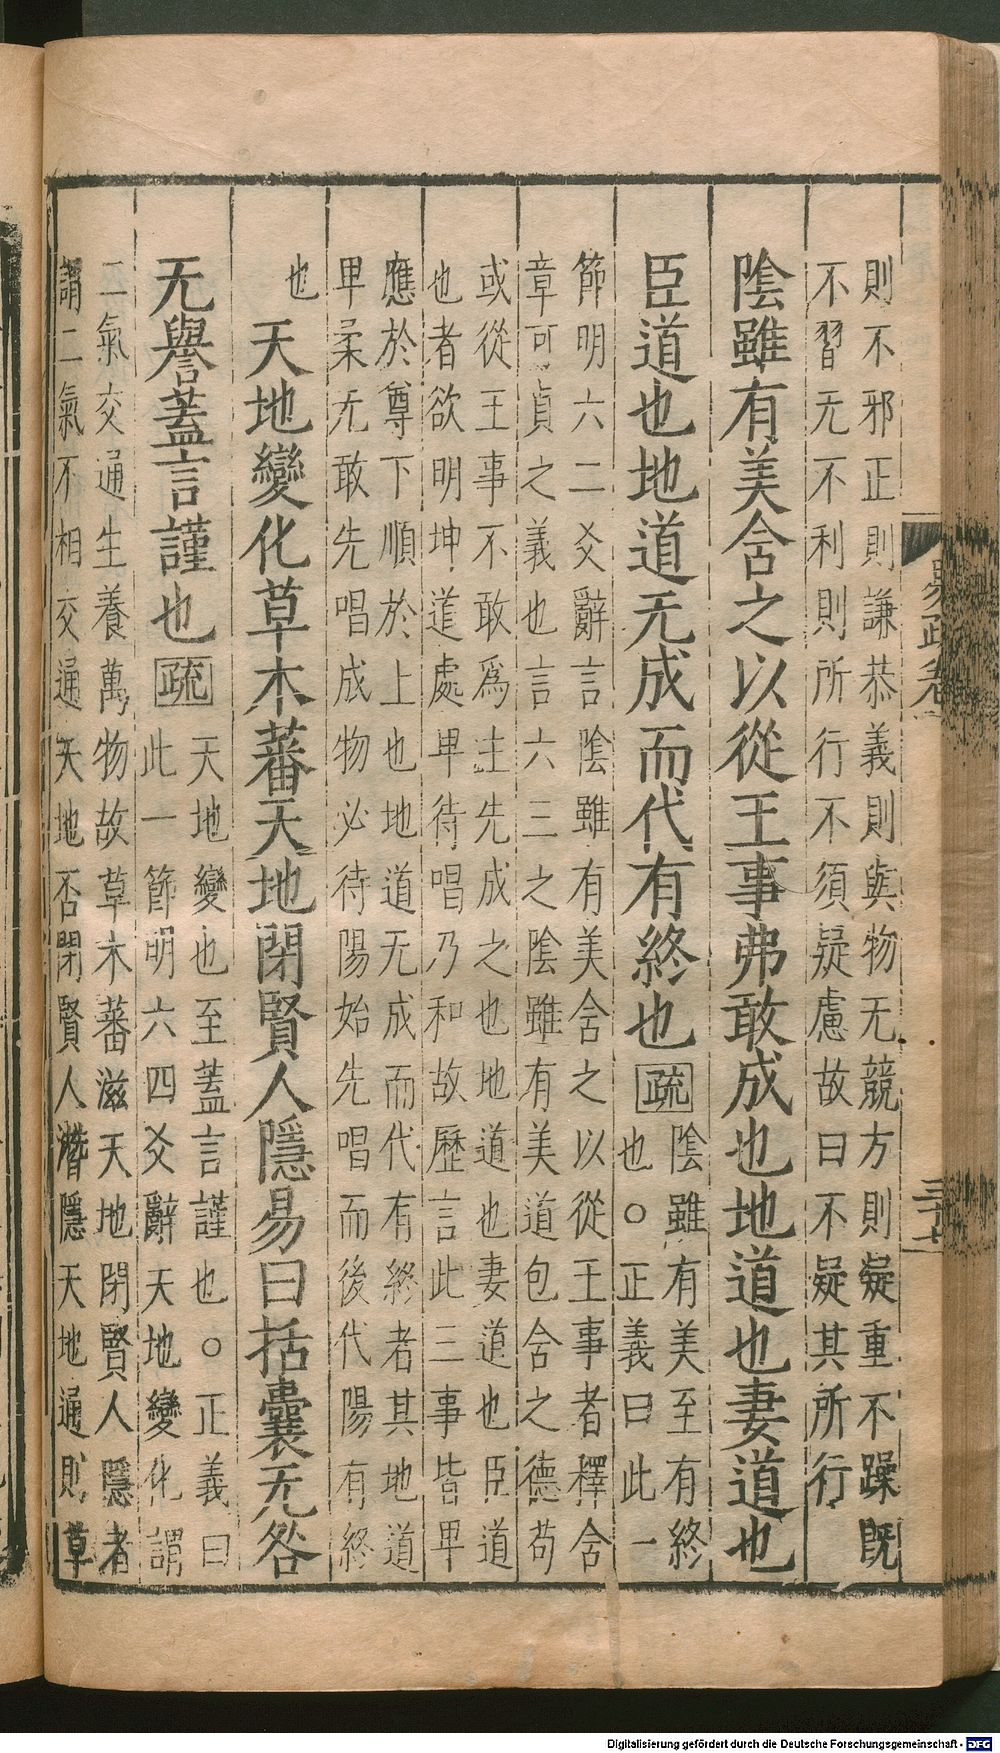 則不邪正則謙恭義則與物无競方則疑重不躁既
不習无不利則所行不須疑慮故曰不疑其所行
陰雖有美含之以從王事弗敢成也地道也妻道也
臣道也地道无成而代有終也疏陰雖有美至有終
也○正義曰此一
節明六二爻辭言陰雖有美含之以從王事者釋含
章可貞之義也言六三之陰雖有美道包含之德苟
或從王事不敢爲主先成之也地道也妻道也臣道
也者欲明坤道處卑待唱乃和故歷言此三事皆卑
應於尊下順於上也地道无成而代有終者其地道
卑柔无敢先唱成物必待陽始先唱而後代陽有終
也
天地變化草木蕃天地閉賢人隱易曰括囊无咎
无譽蓋言謹也疏天地變也至蓋言謹也○正義曰
此一節明六四爻辭天地變化謂
二氣交通生養萬物故草木蕃滋天地閉賢人隱者
謂二氣不相交通天地否閉賢人潛隱天地通則草
易疏卷一
三十七
Digitalisierung gefördert durch die Deutsche Forschungsgemeinschaft - DFG